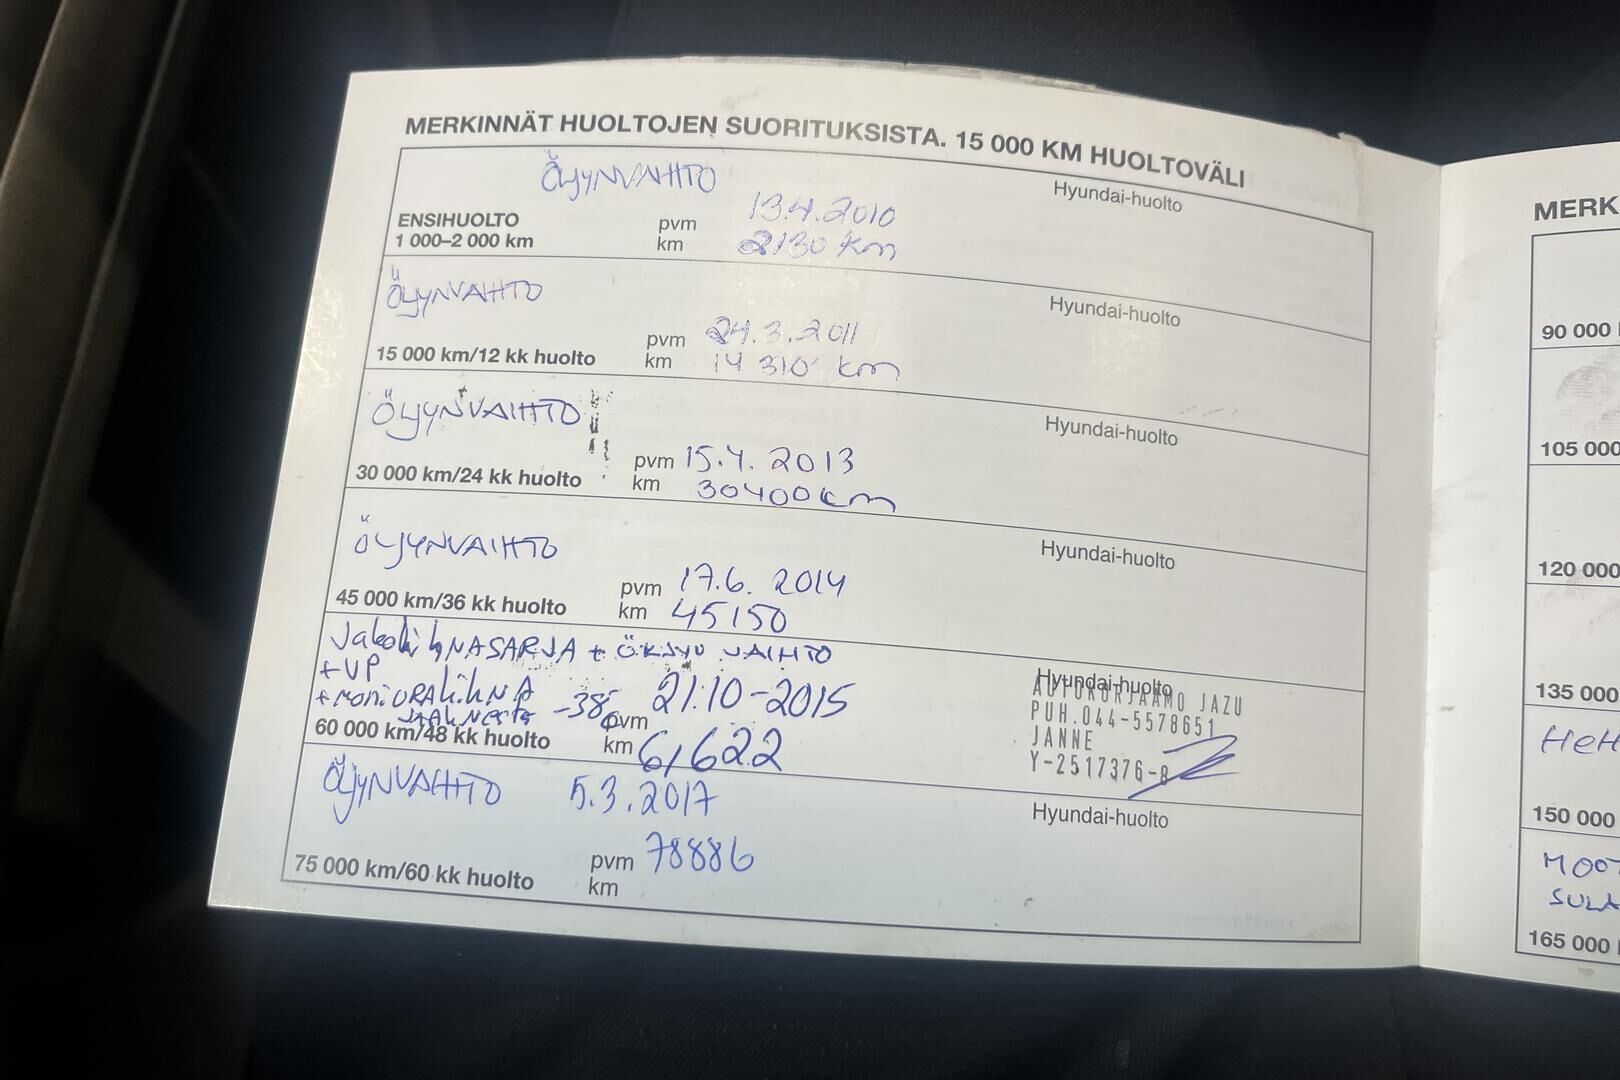 MERKINNÄT HUOLTOJEN SUORITUKSISTA. 15 000 KM HUOLTOVÄLI
ÖLJYNVAIHTO
Hyundai-huolto
ENSIHUOLTO
1 000–2 000 km
pvm 13.4.2010
km 2130 km
ÖLJYNVAIHTO
Hyundai-huolto
15 000 km/12 kk huolto
pvm 24.3.2011
km 14 310 km
ÖLJYNVAIHTO
Hyundai-huolto
30 000 km/24 kk huolto
pvm 15.4.2013
km 30400 km
ÖLJYNVAIHTO
Hyundai-huolto
45 000 km/36 kk huolto
pvm 17.6.2014
km 45150
Jakohihnasarja + VAIHTO
+ VP
+ moniurahihna
Hyundai-huolto
AUTOKORJAAMO JAZU
PUH.044-5578651
JANNE
Y-2517376-8
60 000 km/48 kk huolto
pvm 21.10-2015
km 61622
ÖLJYNVAIHTO 5.3.2017
Hyundai-huolto
75 000 km/60 kk huolto
pvm 78886
km
MERK
90 000
105 000
120 000
135 000
150 000
MOOT
SULA
165 000